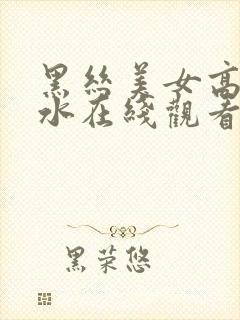 黑丝美女高
水在綫觀看
黑荣悠